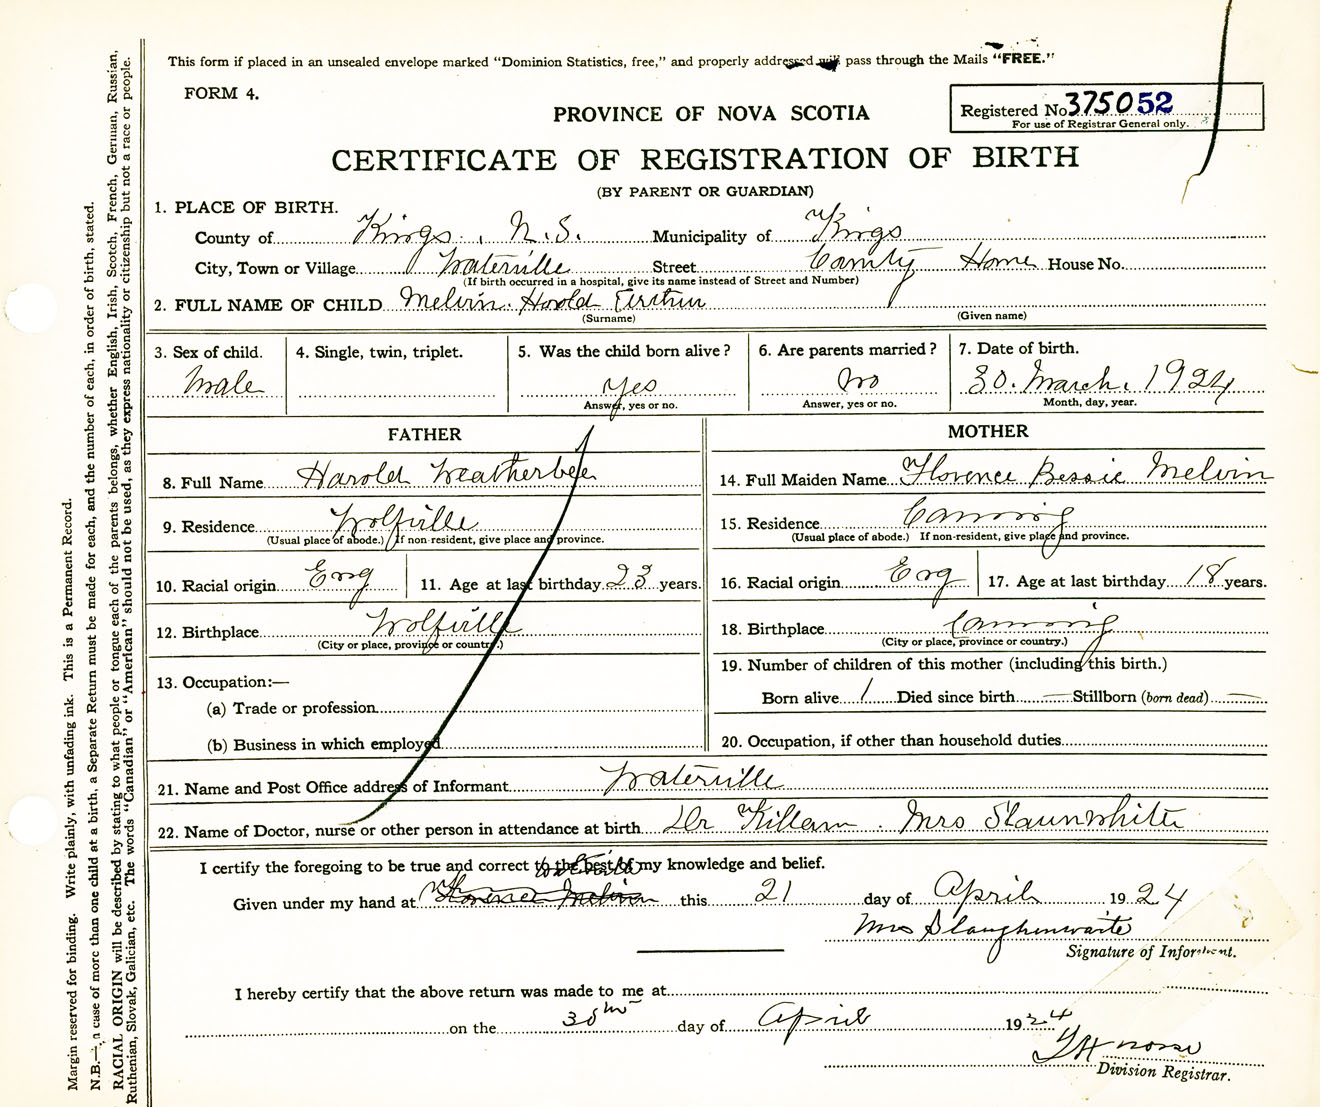 This form if placed in an unsealed envelope marked "Dominion Statistics, free," and properly addressed will pass through the Mails "FREE."
FORM 4.
PROVINCE OF NOVA SCOTIA
Registered No. 375052
For use of Registrar General only.
CERTIFICATE OF REGISTRATION OF BIRTH
(BY PARENT OR GUARDIAN)
1. PLACE OF BIRTH.
County of Kings, N.S. Municipality of Kings
City, Town or Village Waterville Street County Home House No.
(If birth occurred in a hospital, give its name instead of Street and Number)
2. FULL NAME OF CHILD Melvin Harold
(Surname) (Given name)
3. Sex of child. 4. Single, twin, triplet. 5. Was the child born alive? 6. Are parents married? 7. Date of birth.
Male yes no 30. March. 1924
Answer, yes or no. Answer, yes or no. Month, day, year.
FATHER MOTHER
8. Full Name Harold Weatherbee 14. Full Maiden Name Florence Bessie Melvin
9. Residence Wolfville 15. Residence Canning
(Usual place of abode.) If non-resident, give place and province. (Usual place of abode.) If non-resident, give place and province.
10. Racial origin Eng 11. Age at last birthday 23 years. 16. Racial origin Eng 17. Age at last birthday 18 years.
12. Birthplace Wolfville 18. Birthplace Canning
(City or place, province or country.) (City or place, province or country.)
13. Occupation:— 19. Number of children of this mother (including this birth.)
(a) Trade or profession Born alive 1 Died since birth — Stillborn (born dead) —
(b) Business in which employed 20. Occupation, if other than household duties
21. Name and Post Office address of Informant Waterville
22. Name of Doctor, nurse or other person in attendance at birth Dr Killam. Mrs Slaunwhite
I certify the foregoing to be true and correct to the best of my knowledge and belief.
Given under my hand at Florence Melvin this 21 day of April 1924
Mrs Slaughenwaite
Signature of Informant.
I hereby certify that the above return was made to me at
on the 30th day of April 1924
Division Registrar.
Margin reserved for binding. Write plainly, with unfading ink. This is a Permanent Record.
N.B.—In case of more than one child at a birth, a Separate Return must be made for each, and the number of each, in order of birth, stated.
RACIAL ORIGIN will be described by stating to what people or tongue each of the parents belongs, whether English, Irish, Scotch, French, German, Russian,
Ruthenian, Slovak, Galician, etc. The words "Canadian" or "American" should not be used, as they express nationality or citizenship but not a race or people.